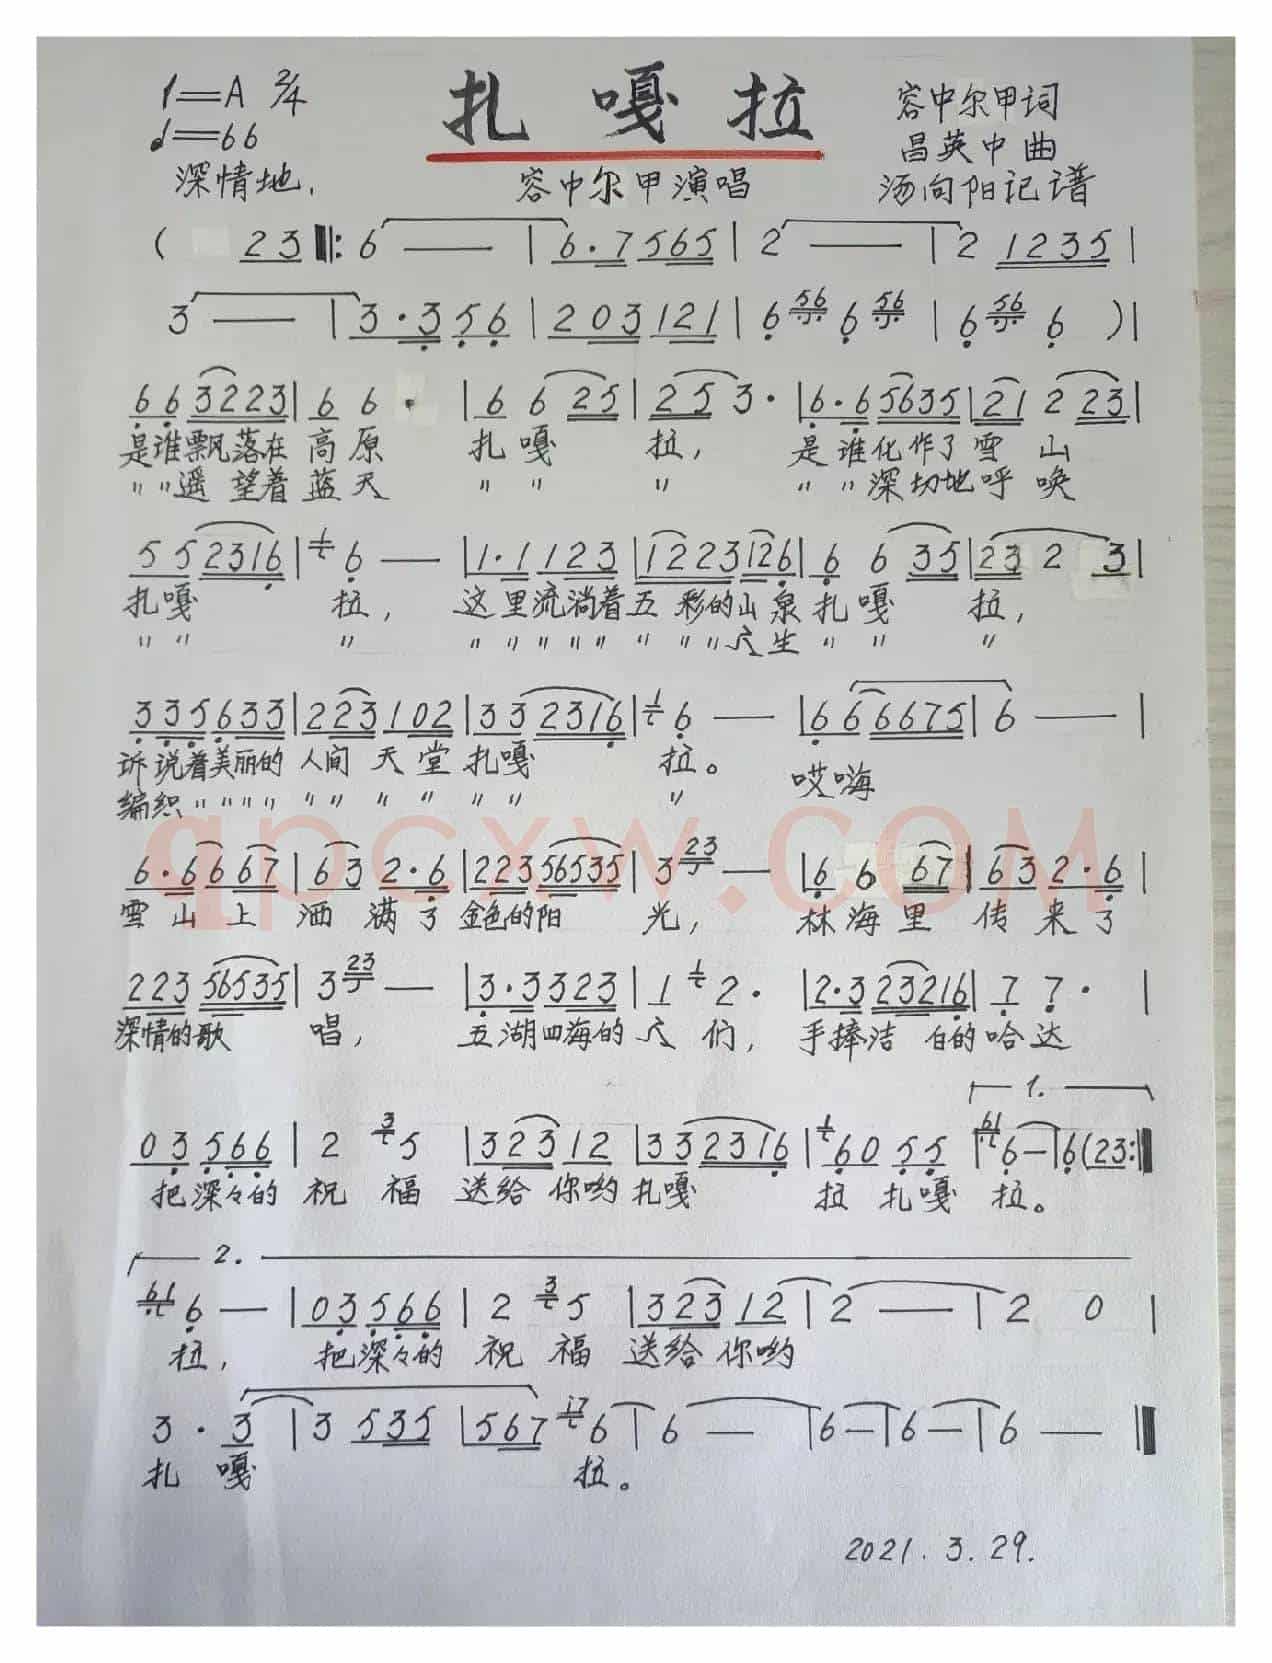 1=A 2/4
♩=66
深情地,
扎嘎拉
容中尔甲演唱
容中尔甲词
昌英中曲
汤向阳记谱
( 23 ‖: 6 — | 6·7 565 | 2 — | 2 1235 |
3 — | 3·3 56 | 203 121 | 6 56 6 56 | 6 56 6 )|
66 3223 | 6 6· | 6 6 25 | 25 3· | 6·6 5635 | 21 2 23 |
是谁飘落在 高原 扎嘎 拉, 是谁化作了雪 山
" " 遥 望着 蓝天 " " " " " 深切地呼 唤
55 2316 | 1 6 — | 1·1 123 | 1223 126 | 6 6 35 | 23 2 3 |
扎嘎 拉, 这里流淌着五 彩的山泉扎嘎 拉,
" " " " " " " " " " " 众生 " " "
335633 | 223 102 | 33 2316 | 1 6 — | 66 6675 | 6 — |
诉说着美丽的 人间 天堂 扎嘎 拉。 哎嗨
编织 " " " " " " " " " " "
6·66 67 | 63 2·6 | 223 56535 | 3 23 — | 6 6 67 | 63 2·6 |
雪山上 洒满了 金色的阳 光, 林海里 传来了
223 56535 | 3 23 — | 3·3 323 | 1 1 2· | 2·3 23216 | 7 7· |
深情的歌 唱, 五湖四海的众们, 手捧洁 白的哈达
1.
03 566 | 2 3 5 | 323 12 | 33 2316 | 1 60 55 | 61 6 — | 6 (23 :‖
把深々的 祝福 送给 你哟扎嘎 拉 扎嘎 拉。
2.
61 6 — | 03 566 | 2 3 5 | 323 12 | 2 — | 2 0 |
拉, 把深々的 祝福 送给 你哟
3· 3 | 3 535 | 567 17 6 | 6 — | 6 — | 6 — | 6 — ‖
扎 嘎 拉。
2021.3.29.
qpcxw.COM